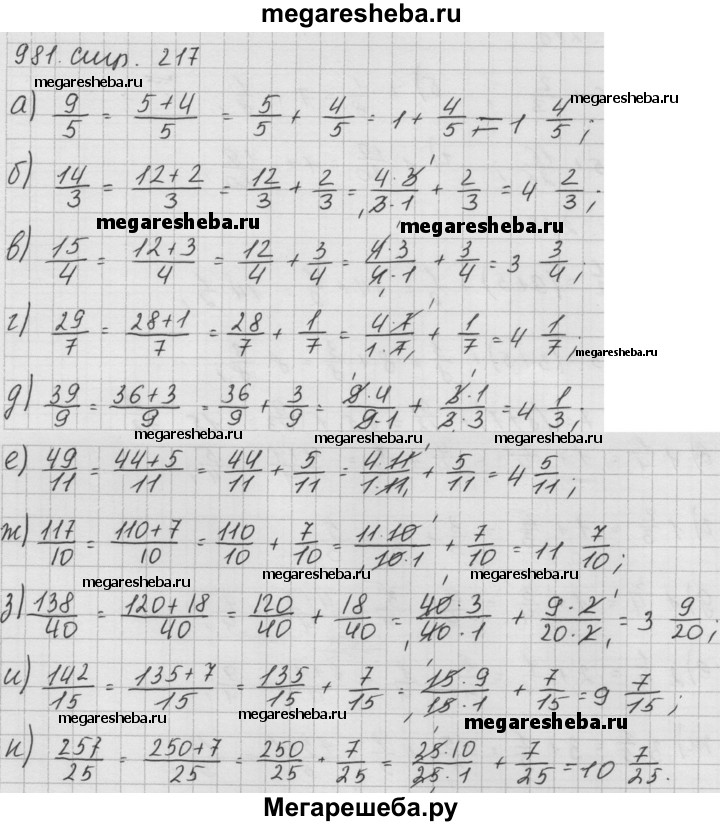 megaresheba.ru
981. стр. 217
megaresheba.ru
а) 9/5 = (5+4)/5 = 5/5 + 4/5 = 1 + 4/5 = 1 4/5; megaresheba.ru
б) 14/3 = (12+2)/3 = 12/3 + 2/3 = (4·3)/(3·1) + 2/3 = 4 2/3;
megaresheba.ru megaresheba.ru
в) 15/4 = (12+3)/4 = 12/4 + 3/4 = (4·3)/(4·1) + 3/4 = 3 3/4;
г) 29/7 = (28+1)/7 = 28/7 + 1/7 = (4·7)/(1·7) + 1/7 = 4 1/7;
megaresheba.ru
д) 39/9 = (36+3)/9 = 36/9 + 3/9 = (9·4)/(9·1) + (3·1)/(3·3) = 4 1/3;
megaresheba.ru megaresheba.ru megaresheba.ru
е) 49/11 = (44+5)/11 = 44/11 + 5/11 = (4·11)/(1·11) + 5/11 = 4 5/11;
ж) 117/10 = (110+7)/10 = 110/10 + 7/10 = (11·10)/(10·1) + 7/10 = 11 7/10;
megaresheba.ru megaresheba.ru megaresheba.ru
з) 138/40 = (120+18)/40 = 120/40 + 18/40 = (40·3)/(40·1) + (9·2)/(20·2) = 3 9/20;
и) 142/15 = (135+7)/15 = 135/15 + 7/15 = (15·9)/(15·1) + 7/15 = 9 7/15;
megaresheba.ru megaresheba.ru megaresheba.ru
к) 257/25 = (250+7)/25 = 250/25 + 7/25 = (25·10)/(25·1) + 7/25 = 10 7/25.
Мегарешеба.ру